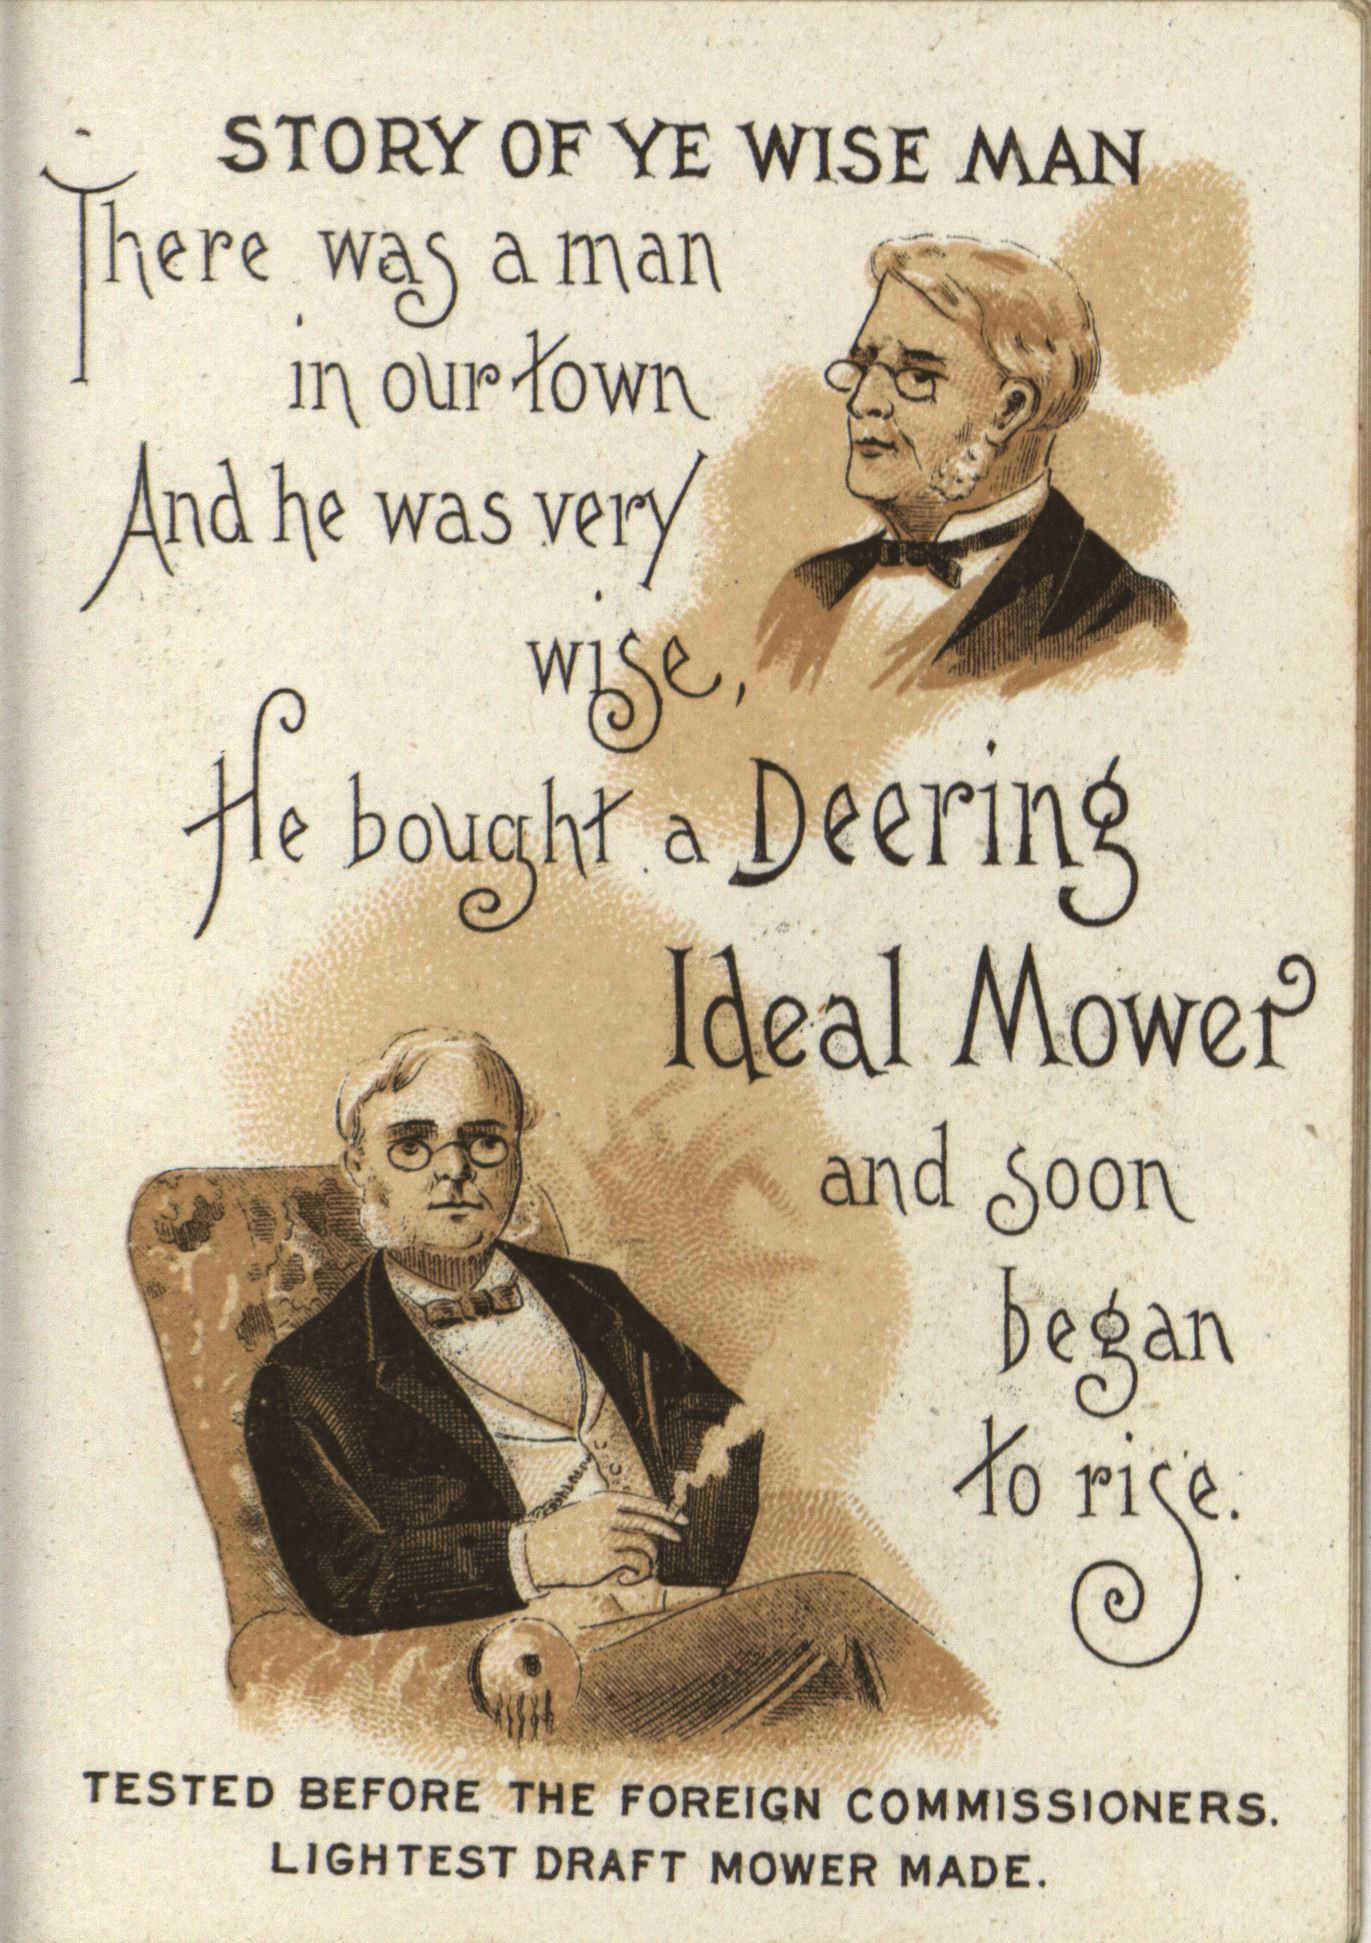 STORY OF YE WISE MAN
There was a man
in our town
And he was very
wise,
He bought a Deering
Ideal Mower
and soon
began
to rise.
TESTED BEFORE THE FOREIGN COMMISSIONERS.
LIGHTEST DRAFT MOWER MADE.